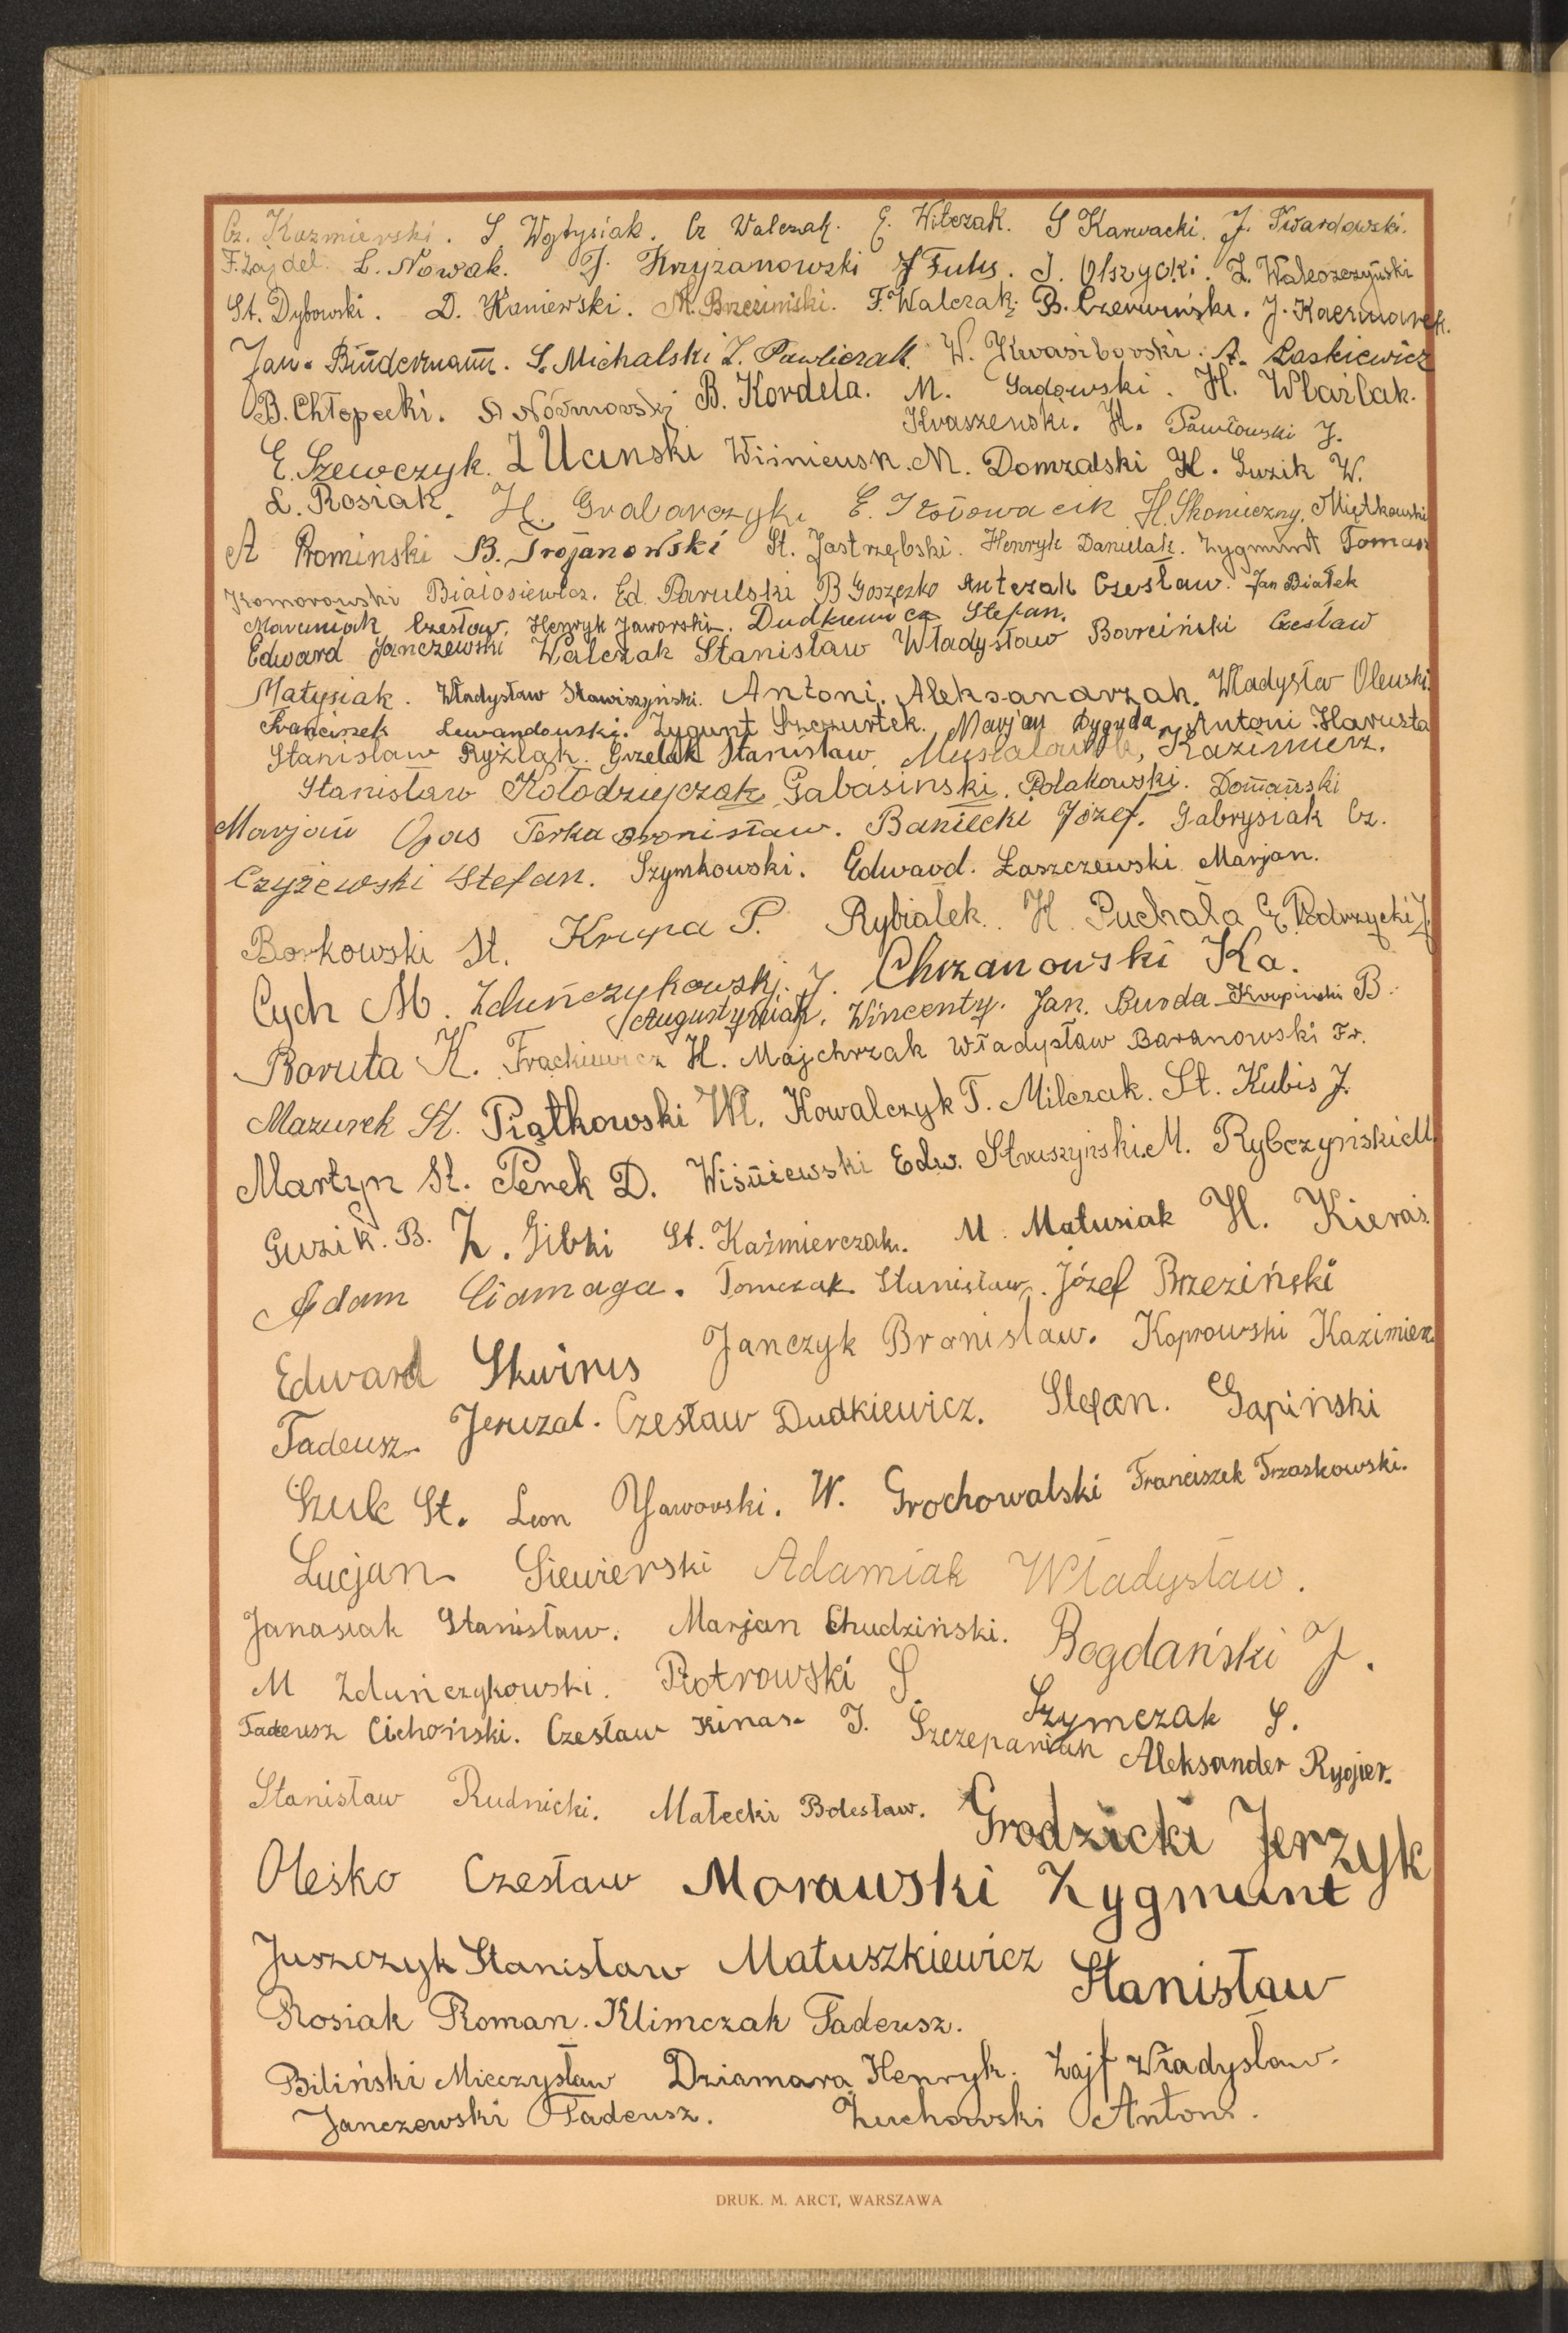 Cz. Kazmierski. S Wojtysiak. Cz Walczak. E. Witczak. S Karwacki. J. Twardowski.
F. Zajdel. L. Nowak. J. Krzyżanowski J Fuks. J. Olszycki. Z. Waleszczyński
St. Dybowski. D. Kaniewski. M. Brzezinski. F. Walczak. B. Czerwiński. J. Kaczmarek.
Jan. Bindermann. S. Michalski Z. Pawliczak W. Kwasiborski. A. Laskiewicz
B. Chłopecki. B. Kordela. M. Sadowski. H. Wlaźlak.
Kraszewski. H. Pawłowski J.
E. Szewczyk. Z Ucinski M. Domzalski H. Guzik W.
L. Rosiak. H. Grabarczyk. E. H. Skonieczny. Miętkowski
A Prominski B. Trojanowski St. Jastrzębski. Henryk Danielak. Zygmunt Tomas
Komorowski Białosiewicz. Ed. Parulski B Goszczko Antczak Czesław. Jan Białek
Marciniak Czesław. Henryk Jaworski. Dudkiewicz Stefan.
Edward Janczewski Walczak Stanisław Władysław Barciński Czesław
Matysiak. Władysław Stawiszyński. Antoni. Aleksandrzak. Władysław Olewski.
Franciszek Lewandowski. Zygunt Szczurtek. Marjan Dyguda. Antoni Harusta
Stanisław Ryżlak. Grzelak Stanisław. Kazimierz.
Stanisław Kołodziejczak Gabasinski. Polakowski. Domański
Marjan Opas Terka Bronisław. Baniecki Józef. Gabrysiak Cz.
Czyżewski Stefan. Szymkowski. Edward. Łaszczewski Marjan.
Borkowski St. Krupa P. Rybiałek. H. Puchała Cz. Podrzycki J.
Cych M. Zduńczykowski. J. Chrzanowski Ka.
Augustyniak. Wincenty. Jan. Burda Krupinski B.
Boruta K. Frąckiewicz H. Majchrzak Władysław Baranowski Fr.
Mazurek St. Piątkowski Wł. Kowalczyk T. Milczak. St. Kubis J.
Martyn St. Perek D. Wiśniewski Edw. Struszyński. M. Rybczyński M.
Guzik. B. Z. Gibki St. Kaźmierczak. M. Matusiak H. Kieraś.
Adam Ciamaga. Tomczak Stanisław. Józef Brzeziński
Edward Skwirus Janczyk Bronisław. Koprowski Kazimierz
Tadeusz. Jeruzal. Czesław Dudkiewicz. Stefan. Gapiński
Szulc St. Leon Yaworski. W. Grochowalski Franciszek Trzaskowski.
Lucjan Siewierski Adamiak Władysław.
Janasiak Stanisław. Marjan Chudziński. Bogdański J.
M Zduńczykowski. Piotrowski S. Szymczak S.
Tadeusz Cichoński. Czesław Kinas. J. Szczepaniak Aleksander Rygier.
Stanisław Rudnicki. Małecki Bolesław. Grodzicki Jerzyk
Oleśko Czesław Morawski Zygmunt
Juszczyk Stanisław Matuszkiewicz Stanisław
Rosiak Roman. Klimczak Tadeusz.
Biliński Mieczysław Dziamara Henryk. Zajf Władysław.
Janczewski Tadeusz. Żuchowski Antoni.
DRUK. M. ARCT, WARSZAWA